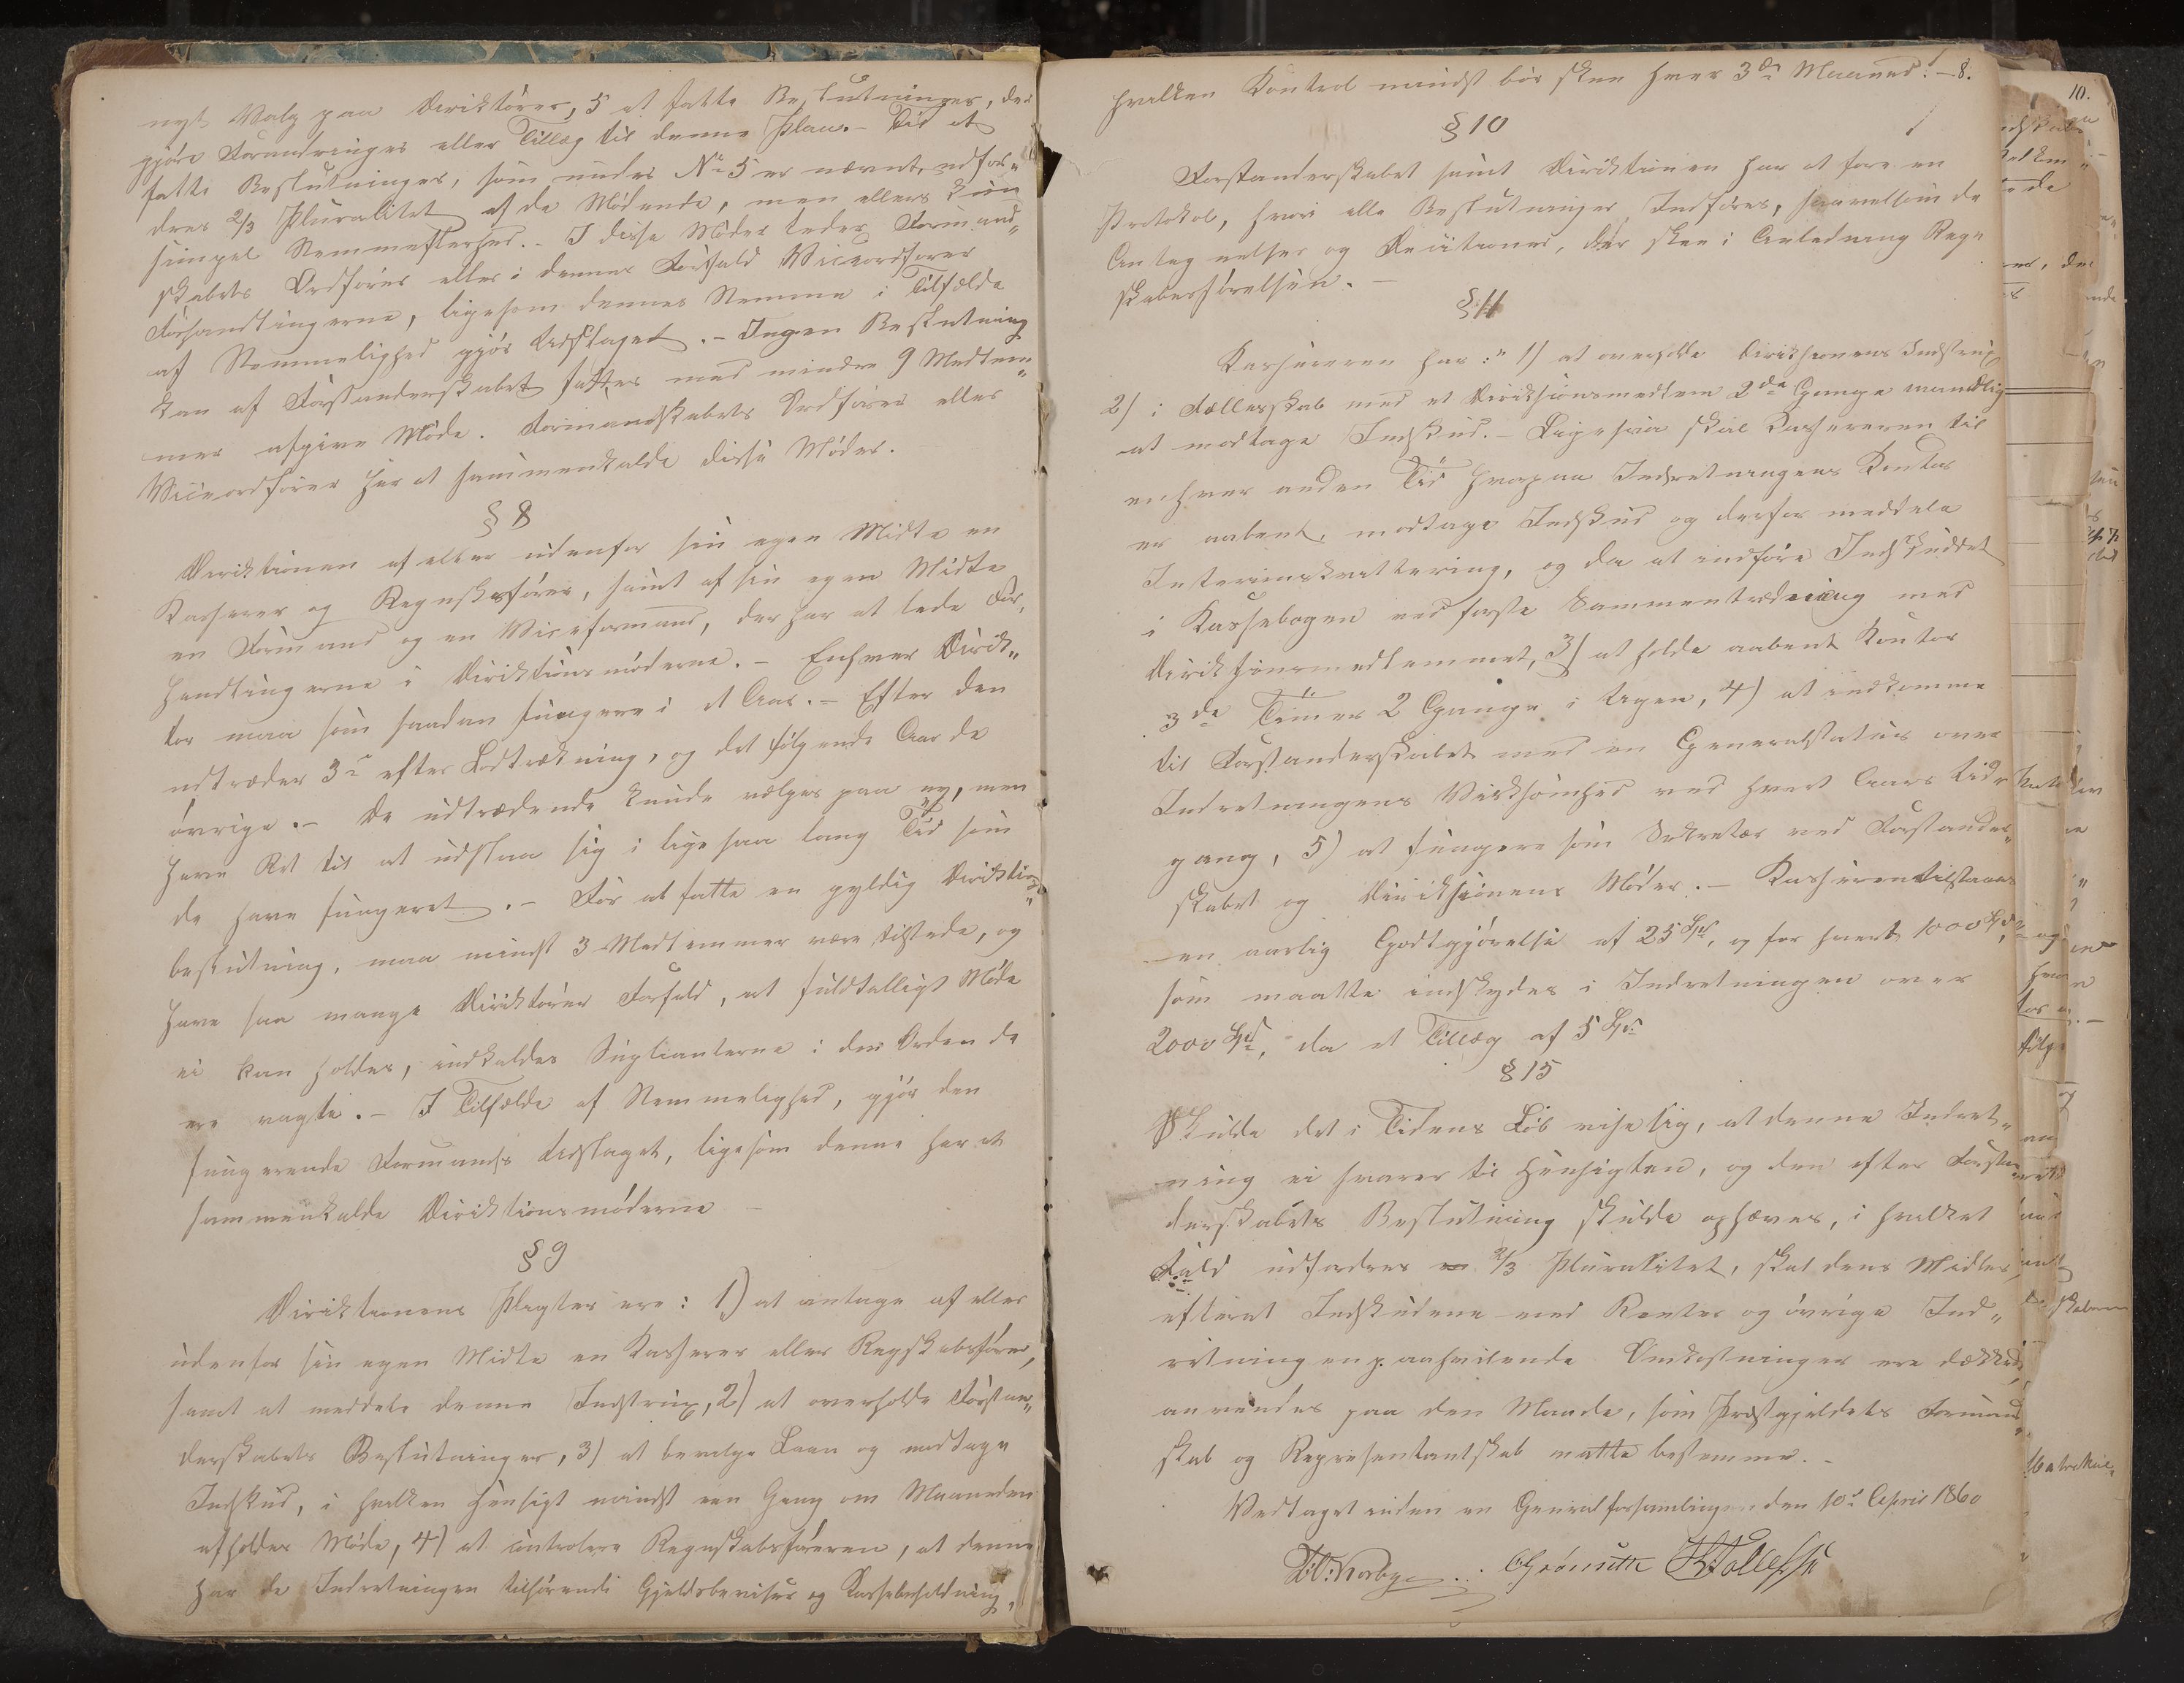 nyt Valg paa Direktører, 5 at fatte Beslutninger, der
gjøre Forandringer eller Tillæg til denne Plan. – Til at
fatte Beslutninger, som under No 5 er nævnt, udfor„
dres 2/3 Pluralitet af de Mødende, men ellers kun
simpel Stemmeflerhed. – I disse Møder leder Formand„
skabets Ordfører eller i dennes Forfald Viceordfører
Forhandlingerne, ligesom dennes Stemme i Tilfælde
af Stemmelighed gjør Udslaget. – Ingen Beslutning
kan af Forstanderskabet fattes med mindre 9 Medlem„
mer afgive Møde. Formandskabets Ordfører eller
Viceordfører har at sammenkalde disse Møder.
§ 8
Direktionen af eller udenfor sin egen Midte en
Kasserer og Regnskasfører, samt af sin egen Midte
en Formand og en Viceformand, der har at lede For„
handlingerne i Direktionsmøderne. – Enhver Direk„
tor maa som saadan fungere i et Aar. – Efter den
udtræder 3e efter Lodtrækning, og det følgende Aar de
øvrige. – De udtrædende kunde vælges paa ny, men
have Ret til at udslaa sig i lige saa lang Tid som
de have fungeret. – For at fatte en gyldig Direktions„
beslutning, maa mindst 3 Medlemmer være tilstede, og
have saa mange Direktører Forfald, at fuldtalligt Møde
ei kan holdes, indkaldes Suplianterne i den Orden de
ere valgte. – I Tilfælde af Stemmelighed, gjør den
fungerende Formands Udslaget, ligesom denne har at
sammenkalde Direktionsmøderne –
§ 9
Direktionens Pligter ere: 1) at antage af eller
udenfor sin egen Midte en Kasserer eller Regskabsfører,
samt at meddele denne Instrux, 2) at overholde Forstan„
derskabets Beslutninger, 3) at bevilge Laan og modtage
Indskud, i hvilken Hensigt mindst een Gang om Maaneden
afholdes Møde, 4) at controlere Regnskabsføreren, at denne
har de Indretningen tilhørende Gjeldsbeviser og Kassebeholdning,
8.
hvilken Kontrol mindst bør skee hver 3de Maaned. –
§ 10
Forstanderskabet samt Direktionen har at føre en
Protokol, hvori alle Beslutninger Indføres, saavelsom de
Antegnelser og Decisioner, der skee i Anledning Regn
skabsførelsen. –
§ 11
Kassereren har: 1) at overholde Direktionens Instrux
2) i Fællesskab med et Direktionsmedlem 2de Gange maanedlig
at modtage Indskud. – Ligesaa skal Kassereren til
enhver anden Tid hvorpaa Indretningens Kontor
er aabent, modtage Indskud og derfor meddele
Interimskvittering, og da at indføre Indskuddet
i Kassebogen ved første Sammentrædning med
Direktionsmedlemmet, 3) at holde aabent Kontor
3de Timer 2 Gange i Ugen, 4) at indkomme
til Forstanderskabet med en Generalstatus over
Indretningens Virksomhed ved hvert Aars Ud„
gang, 5) at fungere som Sekretær ved Forstander„
skabet og Direktionens Møder. – Kassereren tilstaaes
en aarlig Godtgjørelse af 25 Spd, og for hvert 1000 Spd,
som maatte indskydes i Indretningen over
2000 Spd, da et Tillæg af 5 Spd
§ 15
Skulde det i Tidens Løb vise sig, at denne Indret„
ning ei svarer til Hensigten, og den efter Forstan
derskabets Beslutning skulde ophæves, i hvilket
Fald udfordres 2/3 Pluralitet, skal dens Midler,
efterat Indskudene med Renter og øvrige Ind„
retningen paahvilende Omkostninger ere dækkede,
anvendes paa den Maade, som Præstgjeldets Formand„
skab og Representantskab matte bestemme. –
Vedtaget inden en Generalforsamling den 10de April 1860
10.